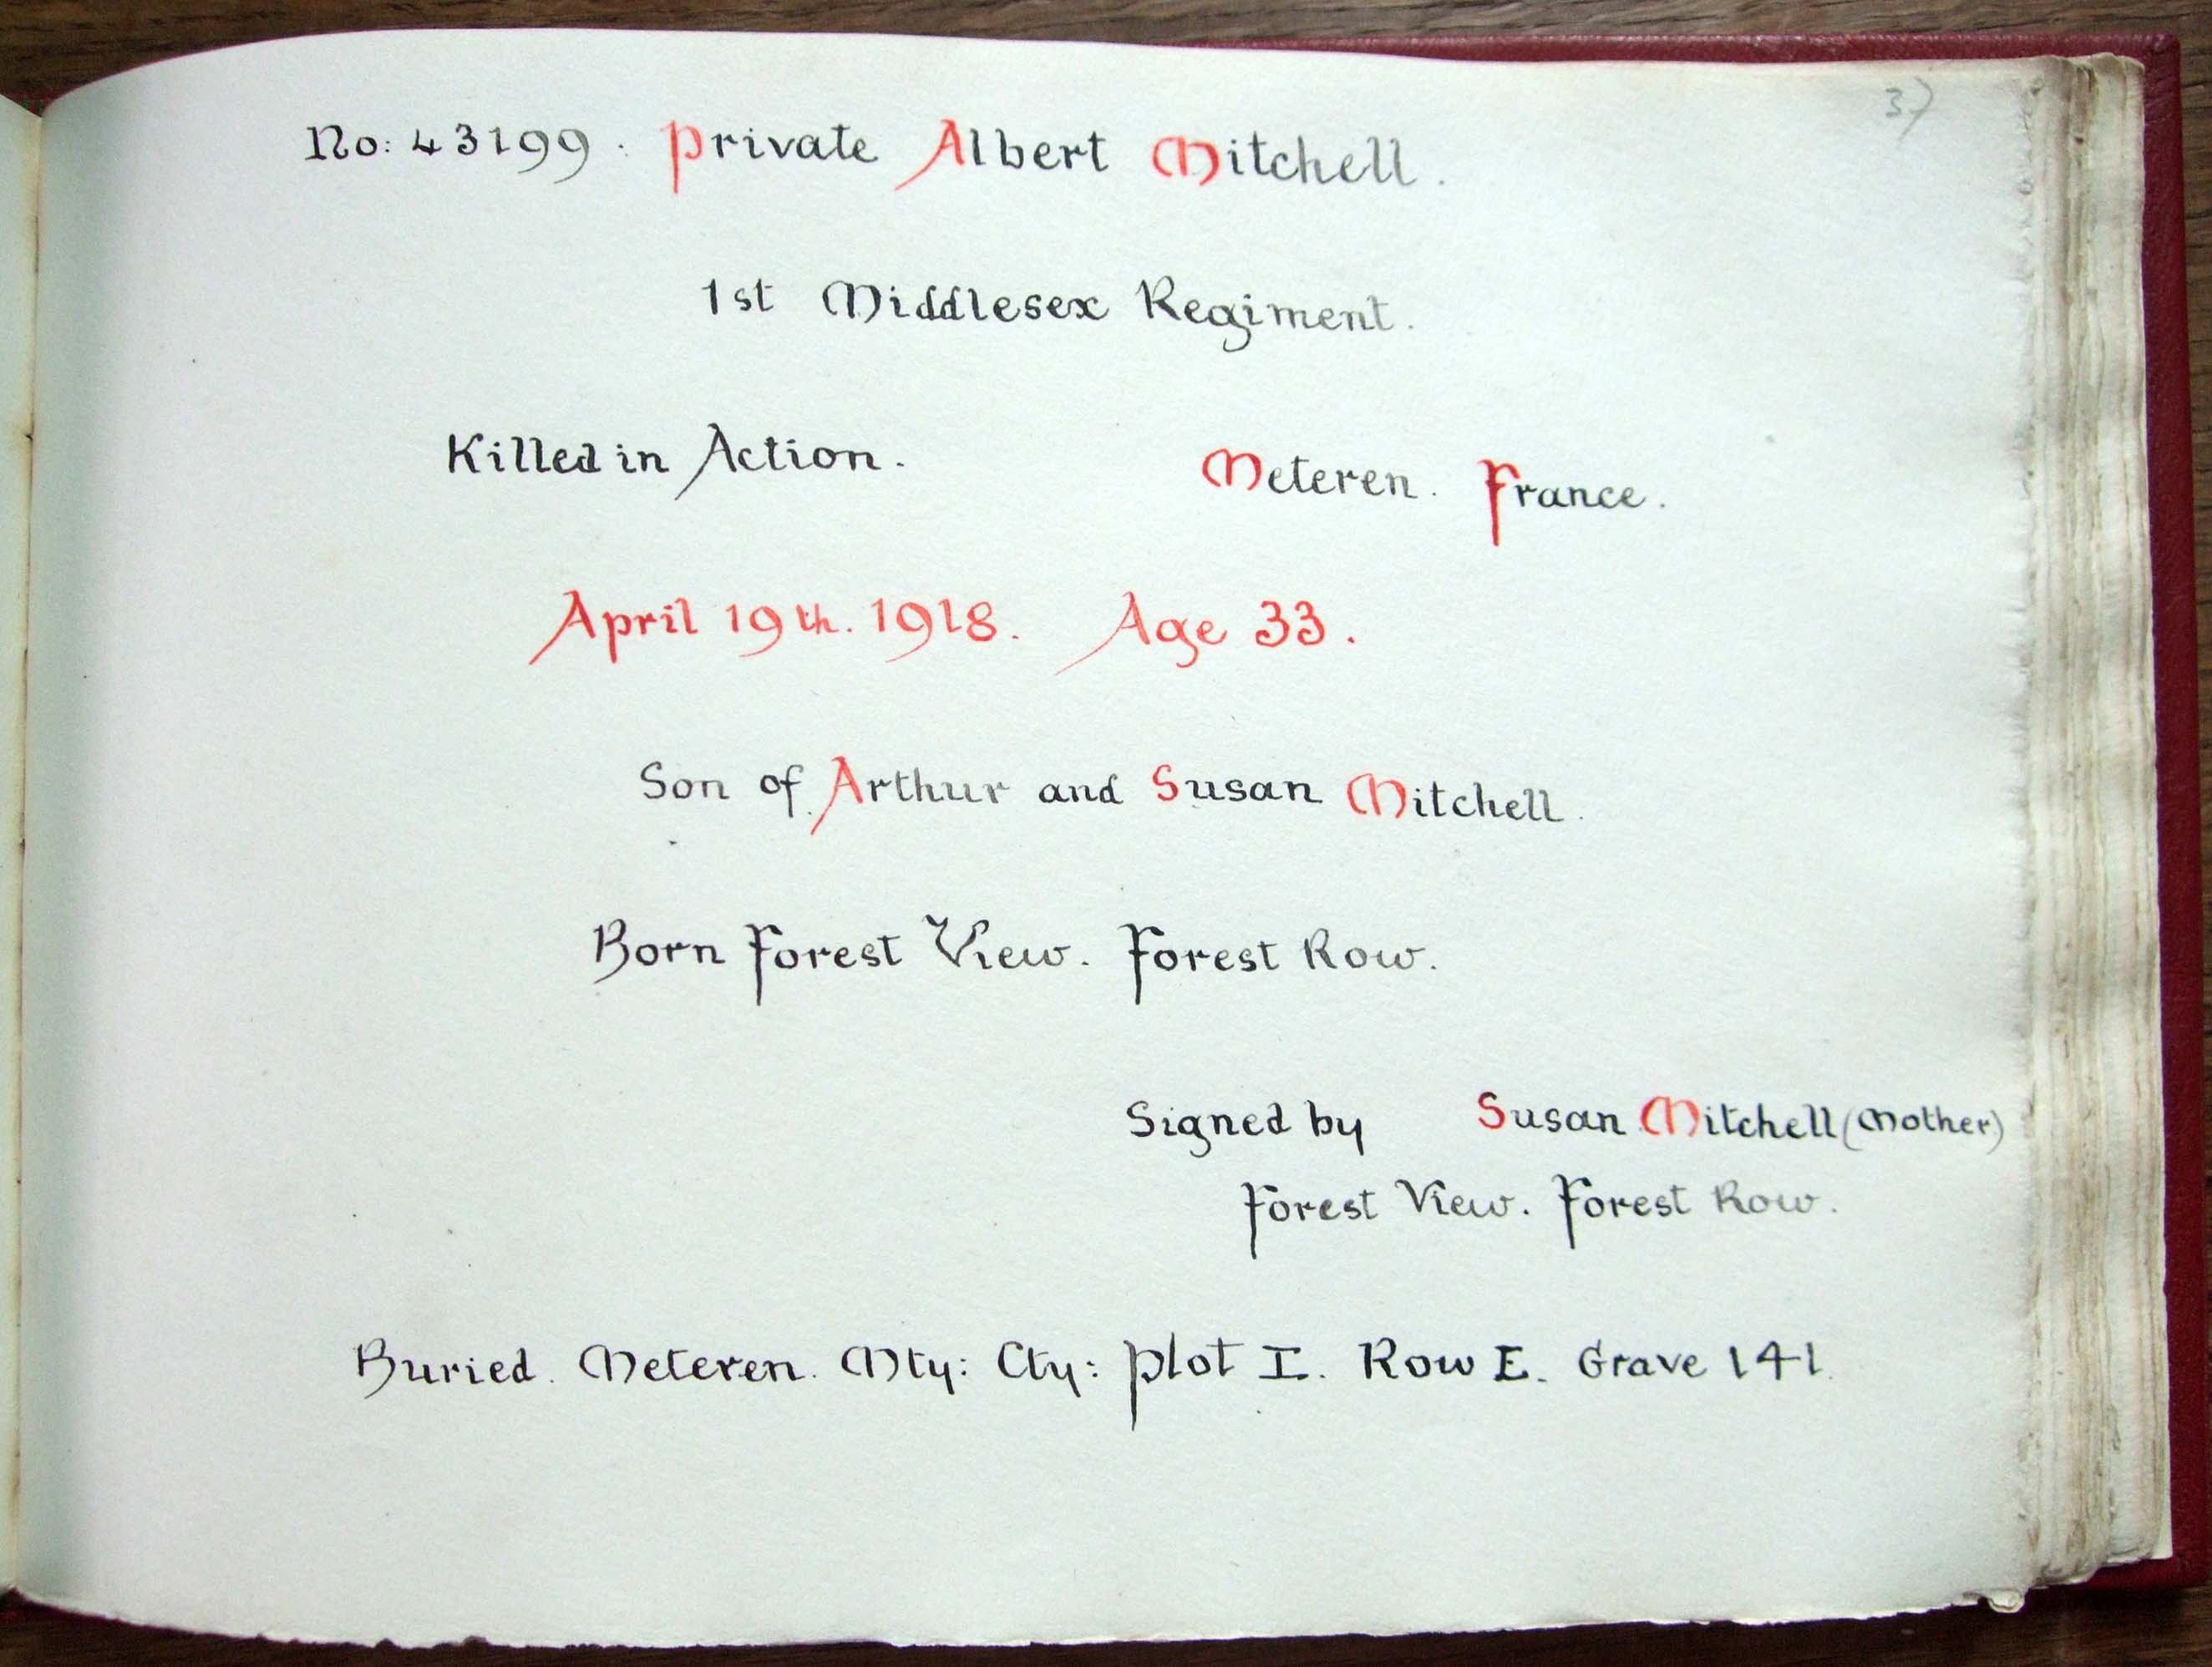 37
No: 43199. Private Albert Mitchell.
1st Middlesex Regiment.
Killed in Action. Meteren. France.
April 19th. 1918. Age 33.
Son of Arthur and Susan Mitchell.
Born Forest View. Forest Row.
Signed by Susan Mitchell (Mother)
Forest View. Forest Row.
Buried. Meteren. Mty: Cty: Plot I. Row E. Grave 141.